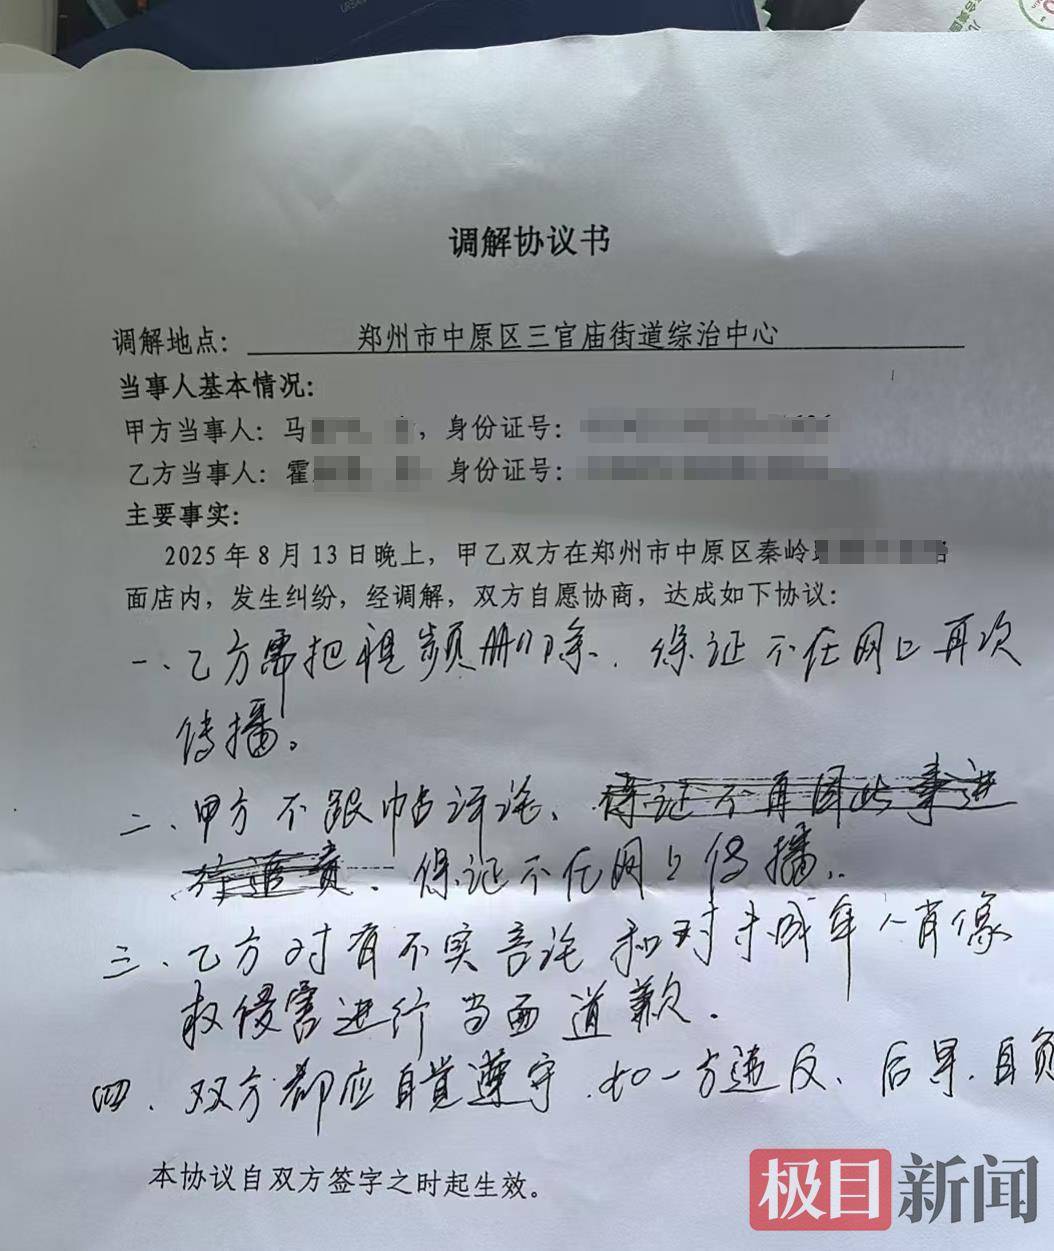 调解协议书
调解地点：郑州市中原区三官庙街道综治中心
当事人基本情况：
甲方当事人：马，身份证号：
乙方当事人：霍，身份证号：
主要事实：
2025年8月13日晚上，甲乙双方在郑州市中原区秦岭
面店内，发生纠纷，经调解，双方自愿协商，达成如下协议：
一、乙方需把视频删除、保证不在网上再次
传播。
二、甲方不跟帖评论、保证不再因此事进
行追责、保证不在网上传播。
三、乙方对有不实言论和对未成年人肖像
权侵害进行当面道歉。
四、双方都应自觉遵守、如一方违反、后果自负
本协议自双方签字之时起生效。
极目新闻